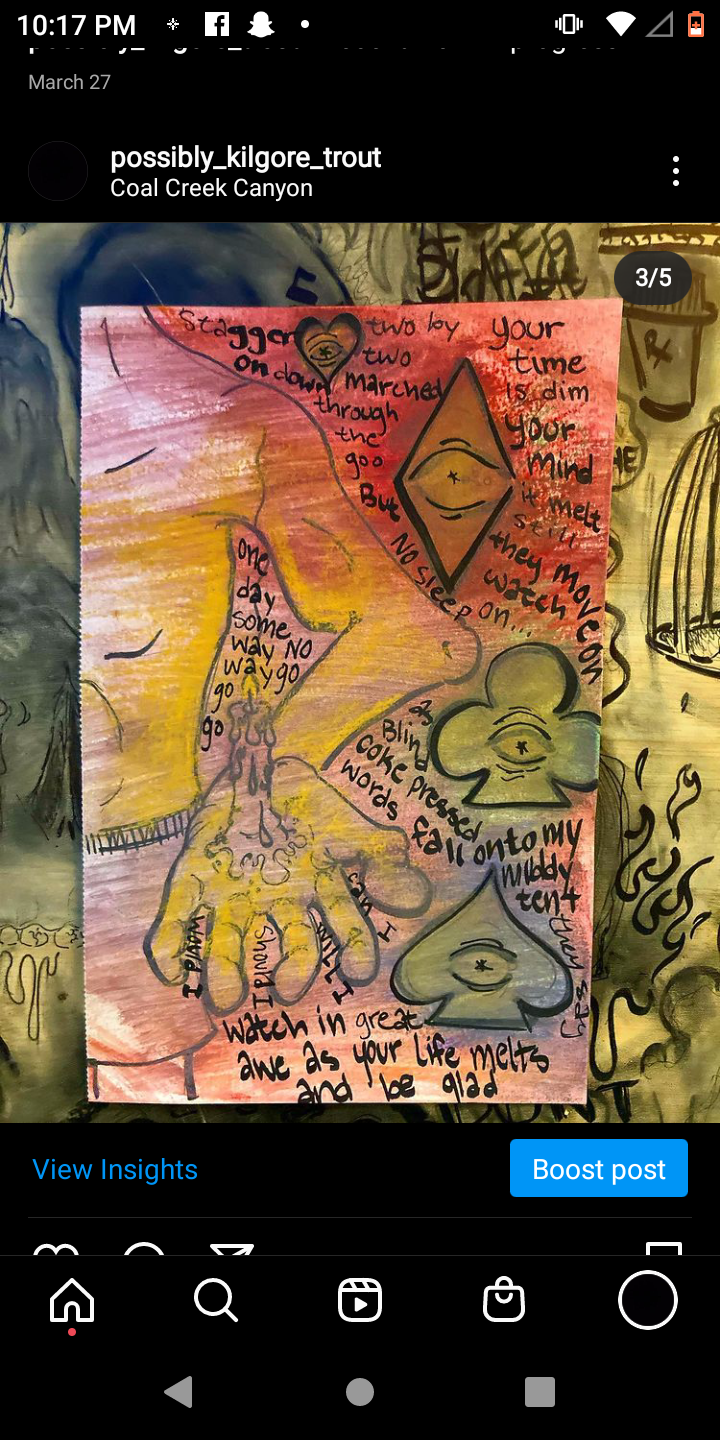 10:17 PM
March 27
possibly_kilgore_trout
Coal Creek Canyon
3/5
Stagger two by
on down two
marched
through
the
goo
But
No sleep on...
your
time
is dim
your
mind
it melt
still
they move on
watch
one
day
some
way NO
way go
go
go
as
Blind
coke pressed
words fall onto my
muddy
tent
they
say
I would
Should I
WILL I
can I
watch in great
awe as your life melts
and be glad
Rx
View Insights
Boost post